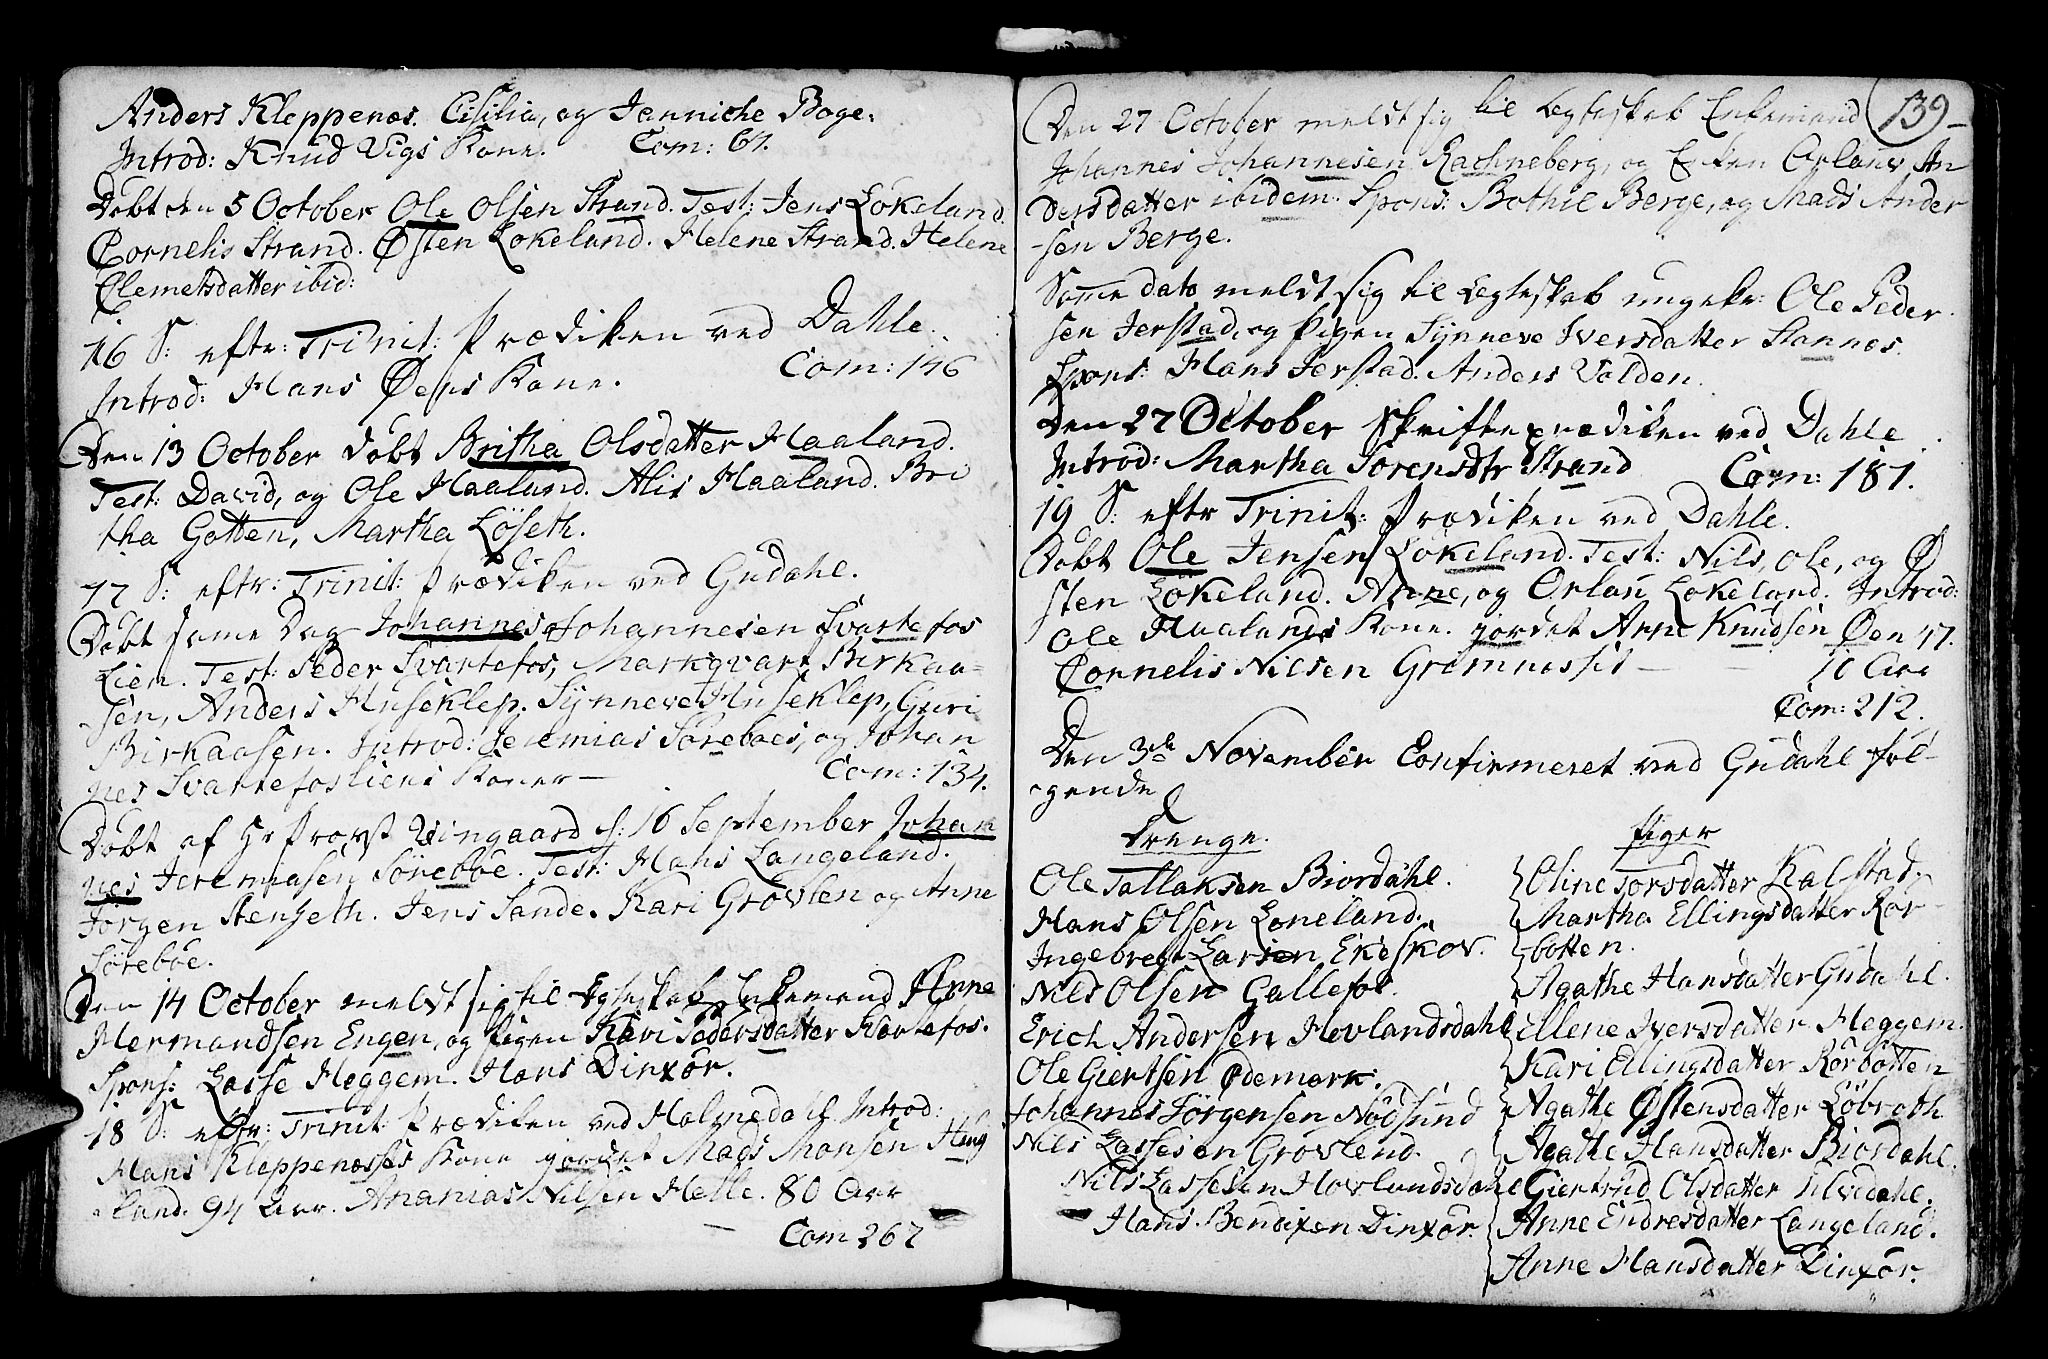 Anders Kleppenæs. Cisilia, og Jenniche Boge.
Introd: Knud Vigs Kone. Com: 61.
Døbt den 5 October Ole Olsen Strand. Test: Jens Løkeland.
Cornelis Strand. Østen Løkeland. Helene Strand. Helene
Clemetsdatter ibid:
16 S: eftr: Trinit: Prædiken ved Dahle.
Introd: Hans Øens Kone. Com: 146
Den 13 October døbt Britha Olsdatter Haaland.
Test: David, og Ole Haaland. Alis Haaland. Bri
tha Gotten, Martha Løseth.
17 S: eftr: Trinit: Prædiken ved Gudahl.
Døbt same Dag Johannes Johannesen Svartefos
Lien. Test: Peder Svartefos, Markqvart Birkaa-
sen, Anders Huseklep. Synneve Huseklep, Guri
Birkaasen. Introd: Jeremias Sørebøes, og Johan
nes Svartefosliens Koner — Com: 134.
Døbt af Hr Provst Wingaard d: 16 September Johan
nes Jeremiasen Sørebøe. Test: Hans Langeland.
Jørgen Stenseth. Jens Sande. Kari Grovlen og Anne
Sørebøe.
Den 14 October meldt sig til Egteskab Enkemand Arne
Hermandsen Engen, og Pigen Kari Pedersdatter Svartefos.
Spons: Lasse Heggem. Hans Dinxør.
18 S: eftr: Trinit: Prædiken ved Holmedahl. Introd:
Hans Kleppenæsses Kone jordet Mads Monsen Haug
land. 94 Aar. Ananias Nilsen Helle. 80 Aar
Com 267
139
Den 27 October meldt sig til Egteskab Enkemand
Johannes Johannesen Rachneberg, og Enken Orlaug An
dersdatter ibidem. Spons: Bothil Berge, og Mads Ander
-sen Berge.
Same dato meldt sig til Egteskab ungekr: Ole Peder
sen Jerstad, og Pigen Synneve Iversdatter Stannes.
Spons: Hans Jerstad. Anders Volden.
Den 27 October Skrifteprædiken ved Dahle.
Introd: Martha Sørensdtr Strand Com: 181.
19 S: eftr Trinit: Prædiken ved Dahle.
Døbt Ole Jensen Løkeland. Test: Nils, Ole, og Ø
sten Løkeland. Anne, og Orlau Løkeland. Introd:
Ole Haalands Kone. jordet Anne Knudsen Øen 47.
Cornelis Nilsen Gromnessit — — 10 Aar
Com: 212.
Den 3de November Confirmeret ved Gudahl føl-
gende
Drenge.
Ole Tollaksen Biordahl.
Hans Olsen Loneland.
Ingebregt Larsen Ekeskov.
Nils Olsen Gallefos.
Erich Andersen Hovlandsdahl
Ole Giertsen Ødemark.
Johannes Jørgensen Nødsund
Nils Lassesen Grovlend.
Nils Lassesen Hovlandsdahl
Hans Bendixen Dinxør.
Piger
Oline Torsdatter Kalstad.
Martha Ellingsdatter Rør-
botten.
Agathe Hansdatter Gudahl.
Ellene Iversdatter Heggem.
Kari Ellingsdatter Rørbotten
Agathe Østensdatter Løbroth
Agathe Hansdatter Biordahl.
Giertrud Olsdatter Ulvedahl.
Anne Endresdatter Langeland.
Anne Hansdatter Dinxør.